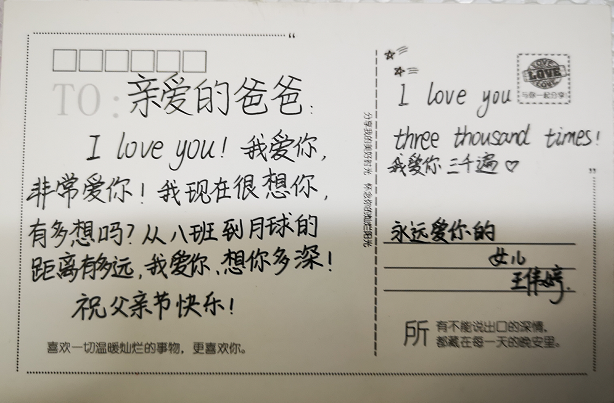 TO:亲爱的爸爸:
I love you! 我爱你,
非常爱你! 我现在很想你,
有多想吗? 从八班到月球的
距离有多远, 我爱你、想你多深!
祝父亲节快乐!
喜欢一切温暖灿烂的事物, 更喜欢你。
LOVE
与你一起分享
I love you
three thousand times!
我爱你三千遍♡
永远爱你的
女儿
王倩婷.
所有不能说出口的深情,
都藏在每一天的晚安里。